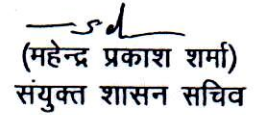 sd
(महेन्द्र प्रकाश शर्मा)
संयुक्त शासन सचिव